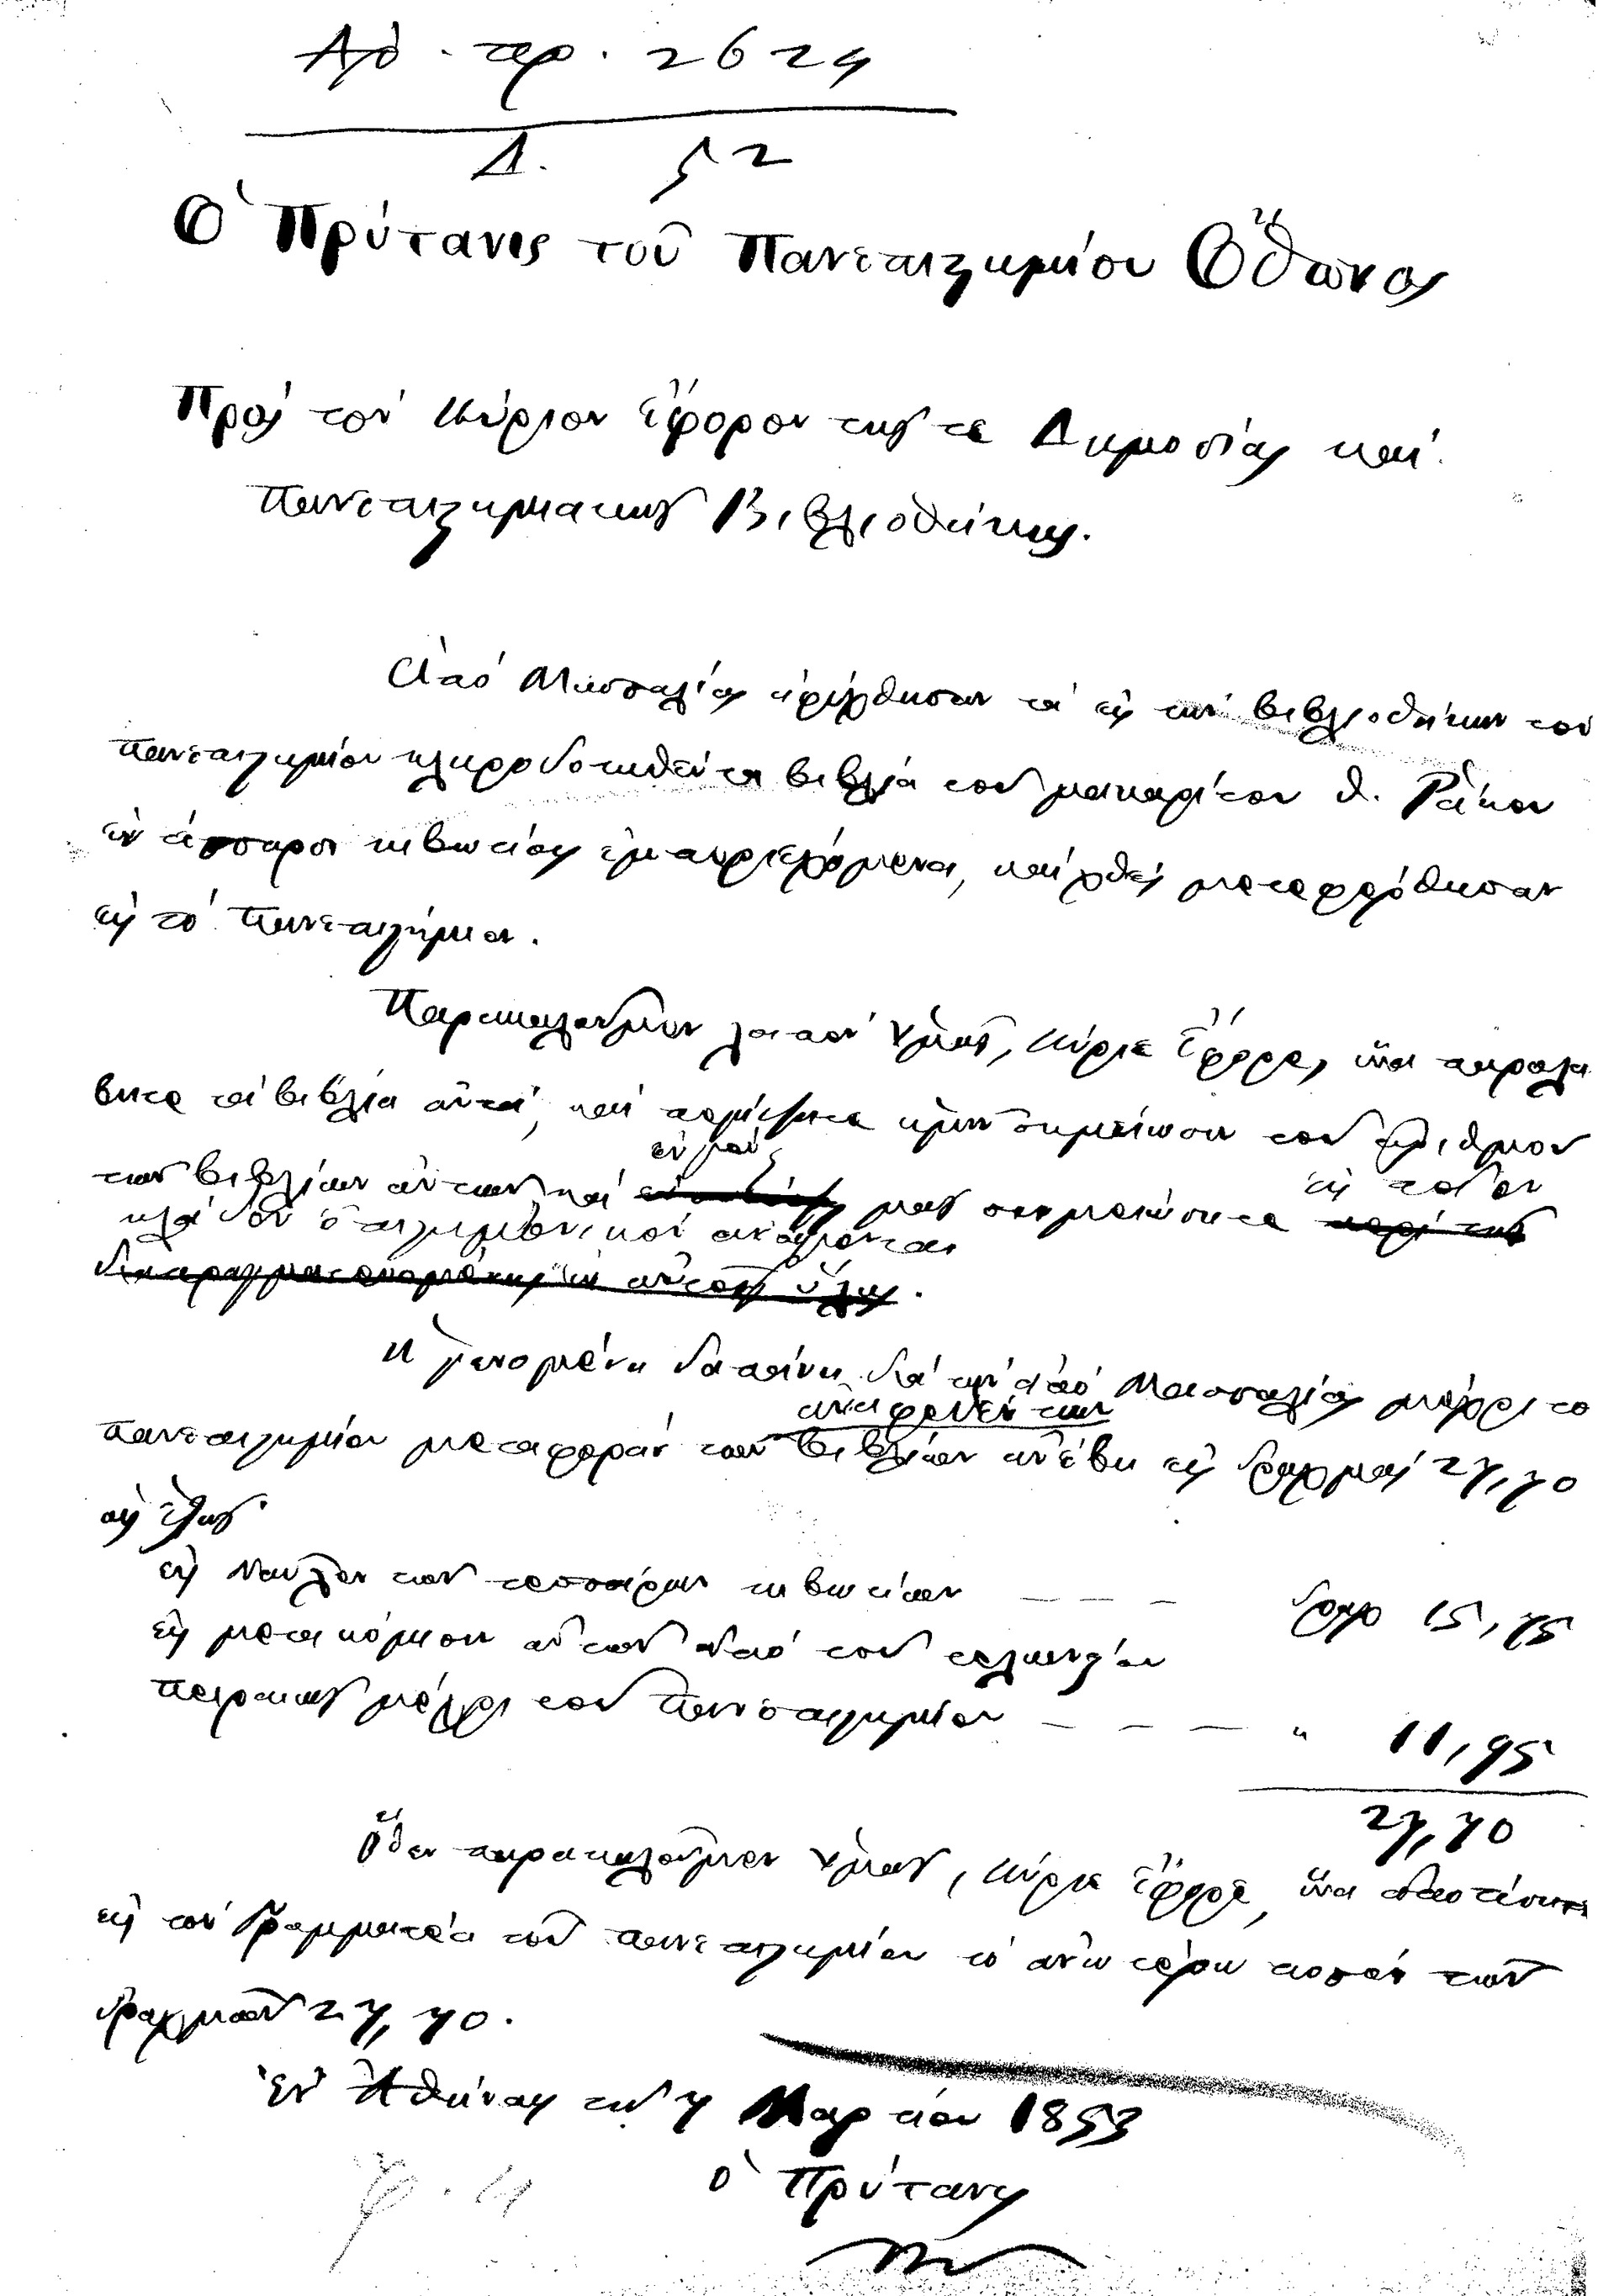 Αρ. πρ. 2624
Δ. 52
Ὁ Πρύτανις τοῦ Πανεπιστημίου Ὄθωνος
Πρὸς τὸν Κύριον Ἔφορον τῆς τε Δημοσίας καὶ
Πανεπιστημιακῆς Βιβλιοθήκης.
Ἀπὸ Μασσαλίας τὰ εἰς τὴν βιβλιοθήκην τοῦ
Πανεπιστημίου κληροδοτηθέντα βιβλία τοῦ μακαρίτου Θ. Ῥάκου
ἐν κιβωτίοις ἐμπεριεχόμενα, καὶ χθὲς μετεφέρθησαν
εἰς τὸ Πανεπιστήμιον.
Παρακαλοῦμεν λοιπὸν Ὑμᾶς, Κύριε Ἔφορε, ἵνα παραλά
βητε τὰ βιβλία αὐτά, καὶ πέμψητε ἡμῖν σημείωσιν τοῦ ἀριθμοῦ
τῶν βιβλίων αὐτῶν καὶ μᾶς σημειώσητε εἰς ποῖον
κλάδον ἐπιστημονικὸν ἀνάγονται
Ἡ γενομένη δαπάνη διὰ τὴν ἀπὸ Μασσαλίας μέχρι το
ἀναφερθέντων
Πανεπιστημίου μεταφορὰν τῶν βιβλίων ἀνέβη εἰς δραχμὰς 27,70
ὡς ἑξῆς
εἰς ναῦλον τῶν τεσσάρων κιβωτίων — — — δραχ 15,75
εἰς μετακόμισιν αὐτῶν ἀπὸ τοῦ τελωνείου
Πειραιῶς μέχρι τοῦ Πανεπιστημίου — — — " 11,95
27,70
Ὅθεν παρακαλοῦμεν Ὑμᾶς, Κύριε Ἔφορε, ἵνα ἀποτίσητε
εἰς τὸν Γραμματέα τοῦ Πανεπιστημίου τὸ ἀνωτέρω ποσὸν τῶν
δραχμῶν 27,70.
Ἐν Ἀθήναις τῇ 7 Μαρτίου 1853
Ὁ Πρύτανις